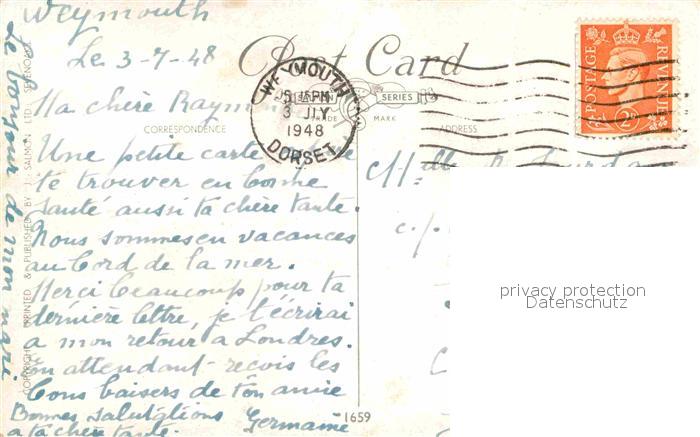 Weymouth
Le 3-7-48
Post Card
WEYMOUTH
5 15 PM
3 JLY
1948
DORSET.
POSTAGE
REVENUE
2D
SALMON SERIES
TRADE MARK
CORRESPONDENCE
ADDRESS
Ma chère Raymonde
Une petite carte
te trouver en bonne
santé aussi ta chère tante.
Nous sommes en vacances
au bord de la mer.
Merci beaucoup pour ta
dernière lettre, je t'écrirai
a mon retour à Londres.
En attendant reçois les
bons baisers de ton amie
Germaine
Bonnes salutations
a ta chère tante.
Le bonjour de mon mari
COPYRIGHT PRINTED & PUBLISHED BY J. SALMON LTD. SEVENOAKS
1659
Melle
c/o
privacy protection
Datenschutz